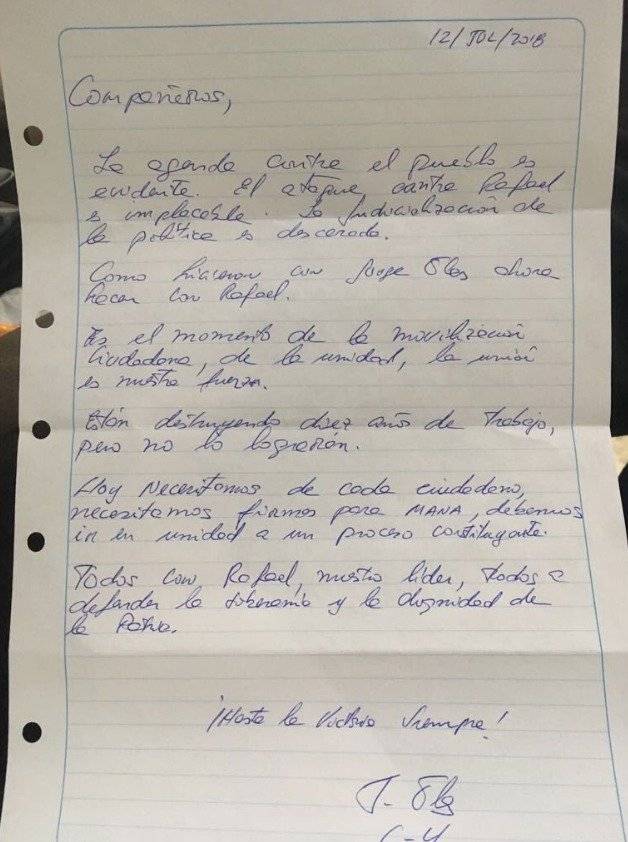 12/JUL/2018
Compañeros,
La agenda contra el pueblo es
evidente. El ataque contra Rafael
es implacable. La judicialización de
la política es descarada.
Como hicieron con Jorge Glas ahora
hacen con Rafael.
Es el momento de la movilización
ciudadana, de la unidad, la unión
es nuestra fuerza.
Están destruyendo diez años de trabajo,
pero no lo lograrán.
Hoy necesitamos de cada ciudadano,
necesitamos firmas para MANA, debemos
ir en unidad a un proceso constituyente.
Todos con Rafael, nuestro líder, todos a
defender la soberanía y la dignidad de
la Patria.
¡Hasta la Victoria Siempre!
J. Glas
C-4